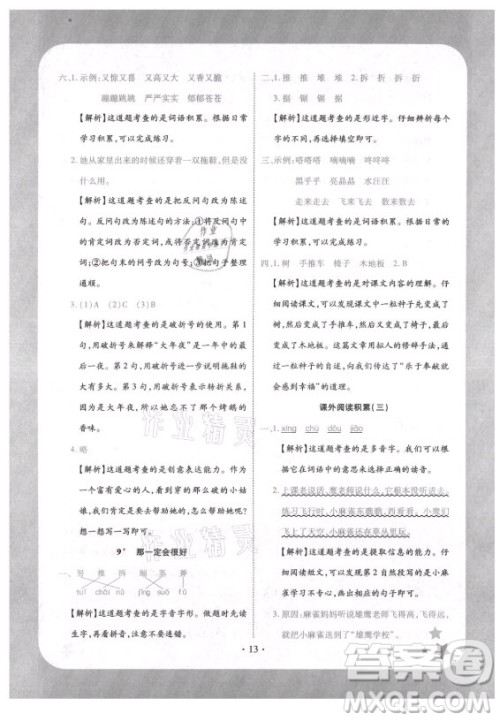 六、1. 示例：又惊又喜 又高又大 又香又脆
蹦蹦跳跳 严严实实 郁郁苍苍
【解析】这道题考查的是词语积累。日常学
习积累，可以完成练习。
2. 她从家里出来的时候还穿着一双拖鞋，但是没
什么用。
【解析】这道题考查的是反问句改为陈述
句。反问句改为陈述句的方法：①反问句
中的肯定词改为否定词，否定词改为肯定
词；②把句末的问号改为句号；③把句子整理
通顺。
3. (1)A (2)C (3)B
【解析】这道题考查的是破折号的运用。第 1
句，用破折号来解释“大年夜”是一年中的
最后一天。第 2 句，用破折号进一步说明拖鞋
的大有多大。第 3 句，破折号表示话题转
换，由大年夜，转换到那么冷的烤鹅的香味
里。
4. 略
【解析】这道题考查的是创意表达能力。一
个富有爱心的人，看到穿的那么破的小姑
娘，没有饭吃，没有人疼爱，会怎样帮助她
呢？想一想写一写即可。
9* 那一定会很好
【解析】这道题考查的是字音字形。依据课
文中的生字，两者进行连线即可。
二、1. 推 推 堆 2. 拆 折 折
3. 据 锯 据
【解析】这道题考查的是形近字。仔细辨析每个
字，再选择填空即可。
三、示例：嗒嗒嗒 嘀嘀嘀 咚咚咚
黑乎乎 亮晶晶 水汪汪
走来走去 飞来飞去 散来散去
【解析】这道题考查的是词语积累。日常学习积
累，可以完成练习。
四、1. 树 手推车 椅子 木地板 2. B
【解析】这道题考查的是对课文内容的理解。仔
细阅读课文，可以知道文中的一粒种子先变成了
树，然后变成了手推车，又变成了椅子，最后变
成了木地板。课文运用拟人的修辞手法，通过对
一粒种子到木地板历程的描述，赞美了“乐于奉献
就会感到幸福”的精神。
课外阅读积累（三）
一、1. xīng chù dōu jiāo
【解析】这道题考查的是多音字。我们可以根据
它在词语中的意思，选择读音。
2. 上课老师说话，鹰老师说什么，它根本没听进去；
练习飞行时，小麻雀东飘飘，西晃晃，
【解析】这道题考查的是提取信息的能力。仔
细阅读短文，可以发现第 2 自然段写的是小麻雀
不认真学习，勾画出有关的句子即可。
3. 原因：麻雀妈妈听说雄鹰老师飞得高，飞得
远，就把小麻雀送到了“雄鹰学校”。
· 13 ·
作业精灵
作业精灵
答案圈
MXQE.COM